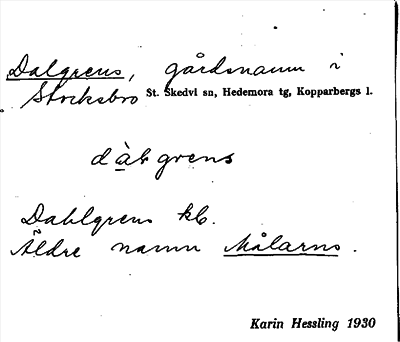 Dalgrens, gårdsnamn i
Stocksbro St. Skedvi sn, Hedemora tg, Kopparbergs l.
dàlgrens
Dahlgrens kb.
Äldre namn Målarns.
Karin Hessling 1930